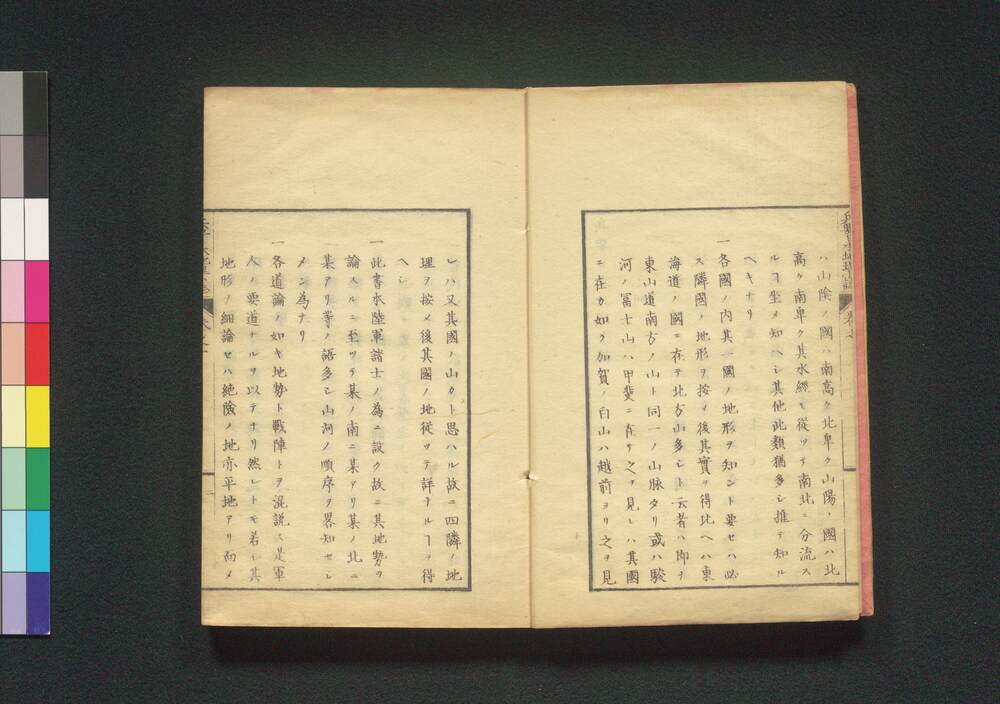 ハ山陰ノ國ハ南高ク北卑ク山陽ノ國ハ北
高ク南卑ク其水經モ從ツテ南北ニ分流ス
ルヿ坐メ知ヘシ其他此類猶多シ推テ知ル
ヘキナリ
一各國ノ内其一國ノ地形ヲ知ント要セハ必
ス隣國ノ地形ヲ按メ後其實ヲ得比ヘハ東
海道ノ國ニ在テ北方山多シト云者ハ即チ
東山道南方ノ山ト同一ノ山脉タリ或ハ駿
河ノ冨士山ハ甲斐ニ在リ之ヲ見レハ其國
ニ在カ如ク加賀ノ白山ハ越前ヨリ之ヲ見
レハ又其國ノ山カト思ハル故ニ四隣ノ地
理ヲ按メ後其國ノ地従ツテ詳ナルヿヲ得
ヘシ
一此書水陸軍諸士ノ為ニ設ク故ニ其地勢ヲ
論スルニ至ツテ某ノ南ニ某アリ某ノ北ニ
某アリ等ノ語多シ山河ノ順序ヲ畧知セシ
メン為ナリ
一各道論ノ如キ地勢ト戰陣トヲ混説ス是軍
人ノ要道ナルヲ以テナリ然レトモ若シ其
地形ノ細論セハ絶險ノ地亦平地アリ而メ